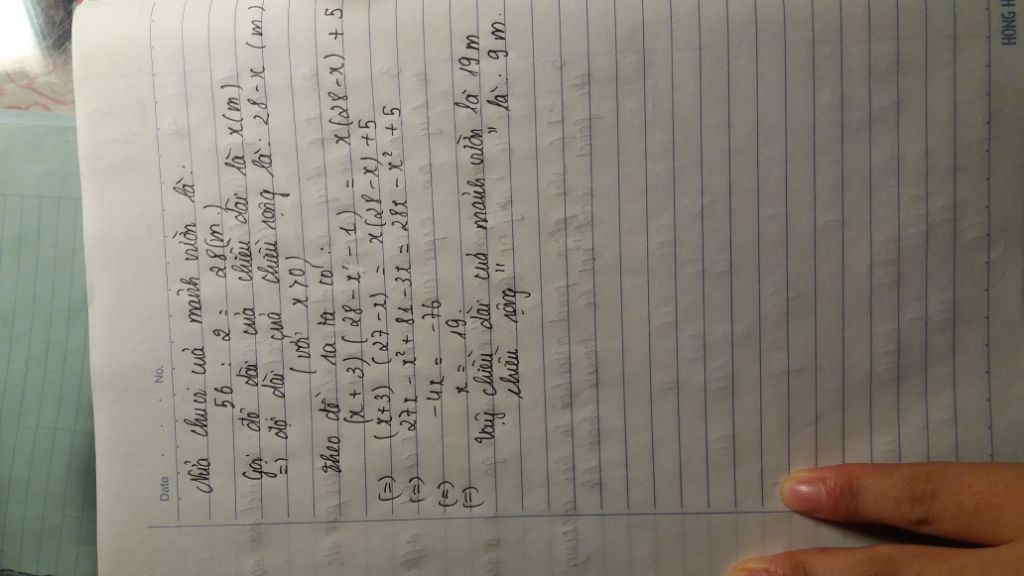 Date No.
Nửa chu vi của mảnh vườn là:
56 : 2 = 28 (m)
Gọi độ dài của chiều dài là x (m)
=> độ dài của chiều rộng là: 28 - x (m)
(với x > 0)
Theo đề ra ta có:
(x + 3) (28 - x - 1) = x (28 - x) + 5
(=) (x+3) (27 - x) = x (28 - x) + 5
(=) 27x - x² + 81 - 3x = 28x - x² + 5
(=) -4x = -76
(=) x = 19.
Vậy chiều dài của mảnh vườn là 19 m
chiều rộng " " là: 9 m.
HONG H